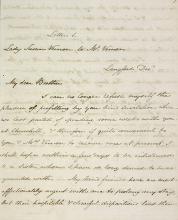 Letter 1.
Lady Susan Vernon to Mr Vernon
Langford, Decr
My dear Brother
I can no longer refuse myself the
pleasure of profiting by your kind invitation when
we last parted, of spending some weeks with you
at Churchill, & therefore if quite convenient to
you & Mrs Vernon to receive me at present, I
shall hope within a few days to be introduced
to a Sister whom I have so long desired to be ac-
quainted with. My kind friends here are most
affectionately urgent with me to prolong my stay,
but their hospitable & chearful dispositions lead them